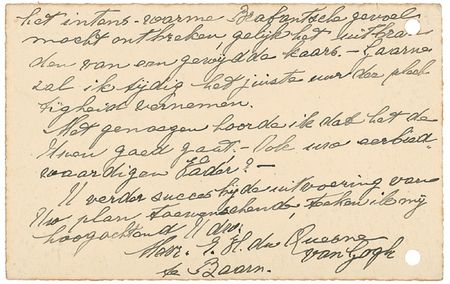 het intens-warme Brabantsche gevoel
mocht ontbreken gelijk het uitbran-
den van een gewijdde kaars. - Gaarne
zal ik tijdig het juiste uur der plech-
tigheid vernemen.
Met genoegen hoorde ik dat het de
Uwen goed gaat. - Ook uw eerbied-
waardigen Vader? -
U verder succes bij de uitvoering van
Uw plan toewenschende, teeken ik mij
hoogachtend U dw.
Mevr. E. H. du Quesne
van Gogh
te Baarn.